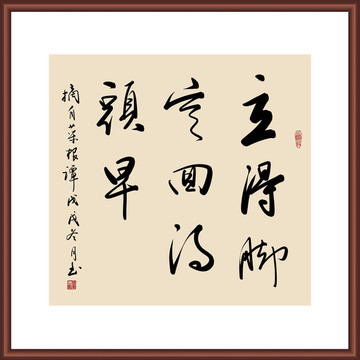 立得脚
定回得
頭早
摘自菜根譚戊戌冬月書